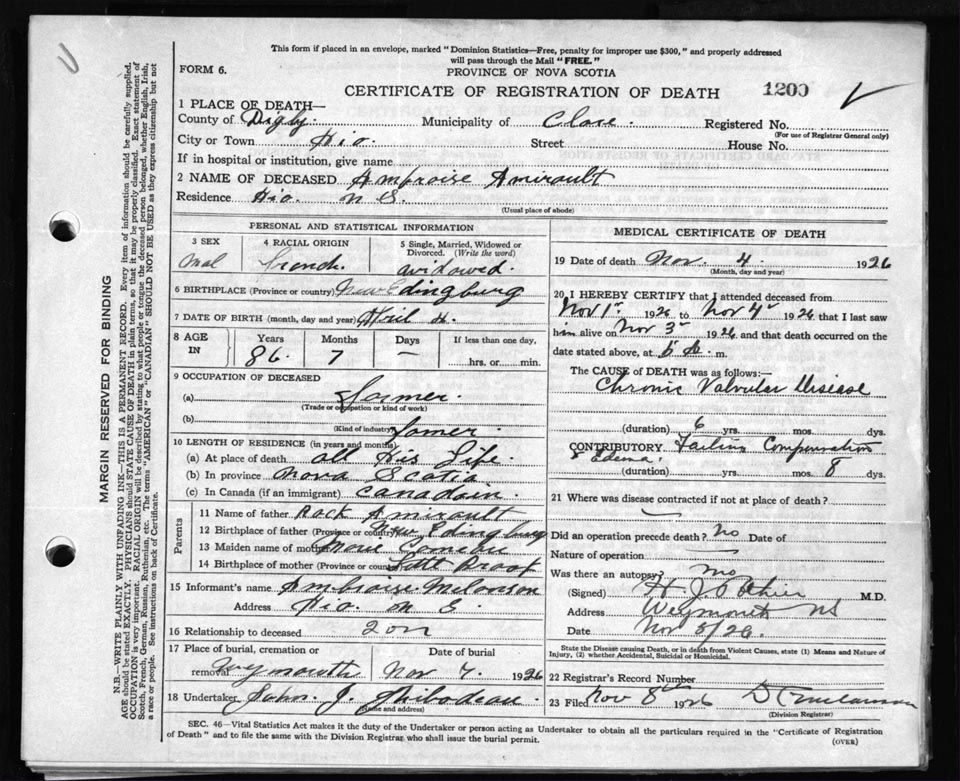 This form if placed in an envelope, marked "Dominion Statistics—Free, penalty for improper use $300," and properly addressed
will pass through the Mail "FREE."
FORM 6.
PROVINCE OF NOVA SCOTIA
CERTIFICATE OF REGISTRATION OF DEATH
1200
1 PLACE OF DEATH—
County of Digby. Municipality of Clare. Registered No.
(For use of Registrar General only)
City or Town Street House No.
If in hospital or institution, give name
2 NAME OF DECEASED Ambroise Amirault
Residence N S.
(Usual place of abode)
PERSONAL AND STATISTICAL INFORMATION
3 SEX
Mal
4 RACIAL ORIGIN
French.
5 Single, Married, Widowed or
Divorced. (Write the word)
widowed.
6 BIRTHPLACE (Province or country) New Edingburg
7 DATE OF BIRTH (month, day and year) April 4.
8 AGE
IN
Years Months Days If less than one day,
86. 7 — hrs. or min.
9 OCCUPATION OF DECEASED
(a) Farmer.
(Trade or occupation or kind of work)
(b) Farmer.
(Kind of industry)
10 LENGTH OF RESIDENCE (in years and months)
(a) At place of death all His Life.
(b) In province Nova Scotia
(c) In Canada (if an immigrant) Canadain.
Parents
11 Name of father Rock Amirault
12 Birthplace of father (Province or country) New Edingburg
13 Maiden name of mother
14 Birthplace of mother (Province or country)
15 Informant's name Ambroise
Address
16 Relationship to deceased
17 Place of burial, cremation or
removal Weymouth
Date of burial
Nov 7. 1926
18 Undertaker John. J. Thibodeau
(Name and address)
MEDICAL CERTIFICATE OF DEATH
19 Date of death Nov. 4. 1926
(Month, day and year)
20 I HEREBY CERTIFY that I attended deceased from
Nov 1st 1926 to Nov 4th 1926 that I last saw
him alive on Nov 3rd 1926 and that death occurred on the
date stated above, at 5 p. m.
The CAUSE of DEATH was as follows:—
Chronic Valvular Disease
(duration) 6 yrs. mos. dys.
CONTRIBUTORY Failing Compensation
Edema.
(duration) yrs. mos. 8 dys.
21 Where was disease contracted if not at place of death?
—
Did an operation precede death? no Date of
Nature of operation —
Was there an autopsy? no
(Signed) M.D.
Address Weymouth NS
Date Nov 8/26.
State the Disease causing Death, or in death from Violent Causes, state (1) Means and Nature of
Injury, (2) whether Accidental, Suicidal or Homicidal.
22 Registrar's Record Number
23 Filed Nov 8th 1926
(Division Registrar)
SEC. 46—Vital Statistics Act makes it the duty of the Undertaker or person acting as Undertaker to obtain all the particulars required in the "Certificate of Registration
of Death" and to file the same with the Division Registrar who shall issue the burial permit.
(OVER)
MARGIN RESERVED FOR BINDING
N.B.—WRITE PLAINLY WITH UNFADING INK—THIS IS A PERMANENT RECORD. Every item of information should be carefully supplied.
AGE should be stated EXACTLY. PHYSICIANS should STATE CAUSE OF DEATH in plain terms, so that it may be properly classified. Exact statement of
OCCUPATION is very important. RACIAL ORIGIN will be described by stating to what people or tongue the deceased person belonged, whether English, Irish,
Scotch, French, German, Russian, Ruthenian, etc. The terms "AMERICAN" or "CANADIAN" SHOULD NOT BE USED as they express citizenship but not
a race or people. See instructions on back of Certificate.